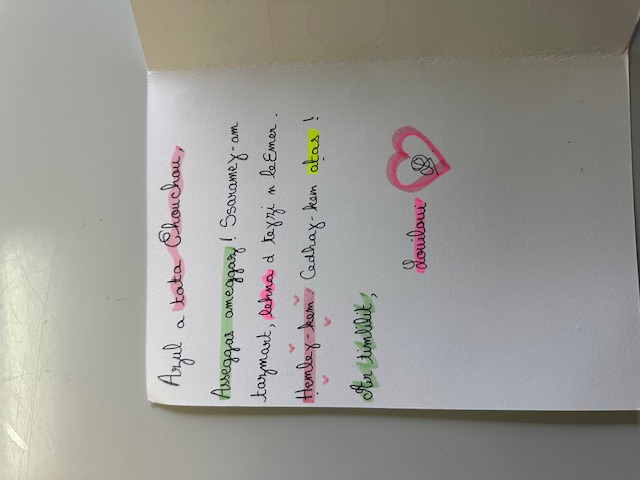 Azul a tata Chouchou,
Asseggas ameggaz ! Ssaramey-am
tazmart, lehna d teyzi n leEmer.
Hemley-kem. Cedhay-kem aṭas !
Ar timlilit,
Louiloui